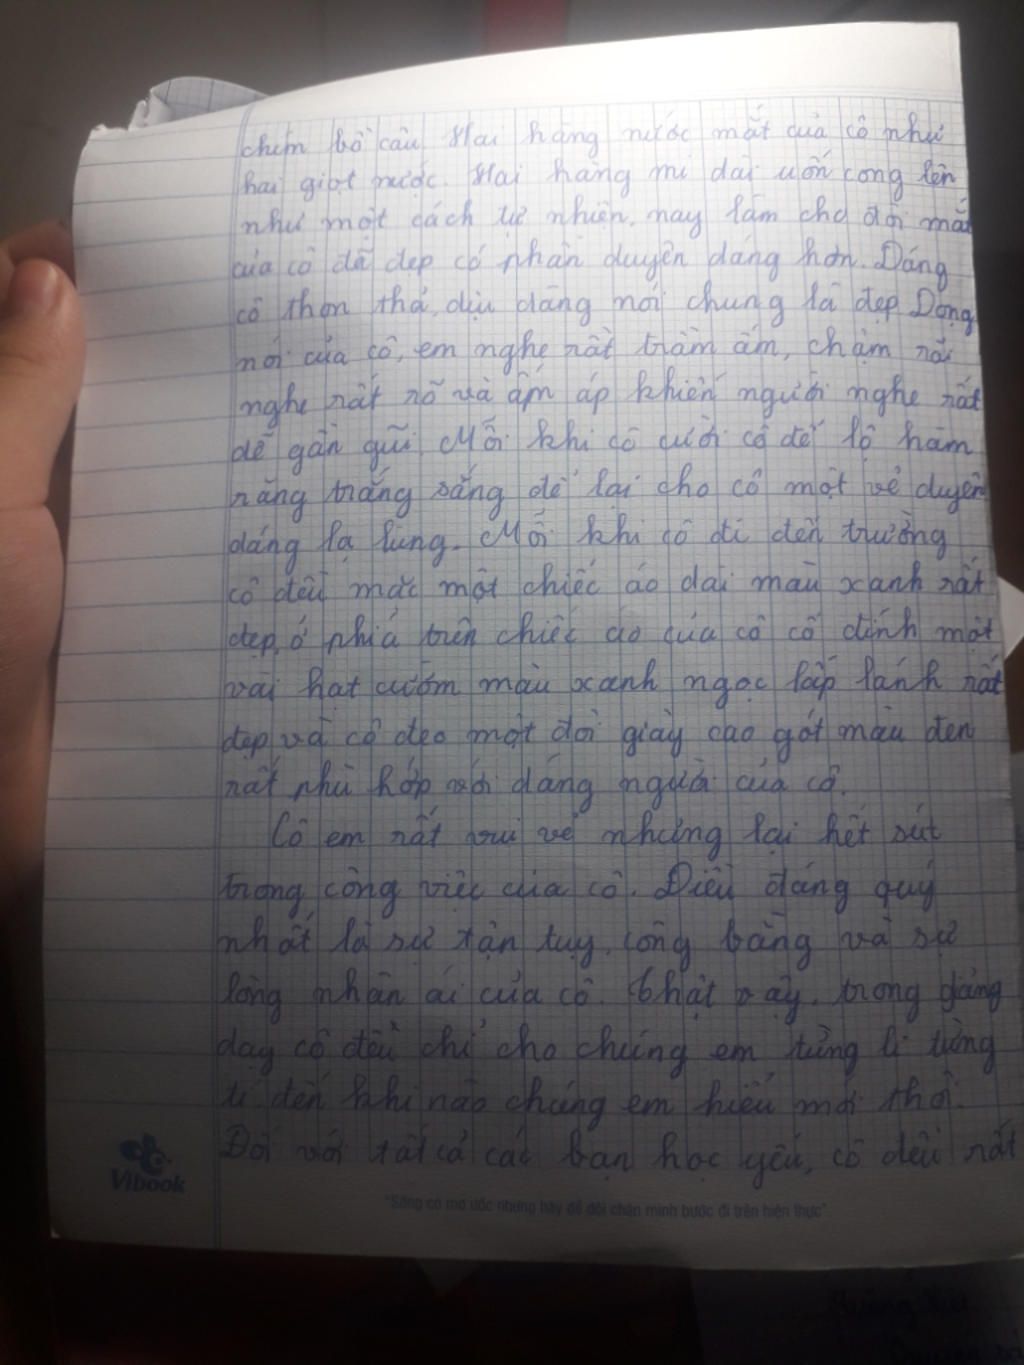 chim bồ câu Hai hàng nước mắt của cô như
hai giọt nước. Hai hàng mi dài uốn cong lên
như một cách tự nhiên, nay làm cho đôi mắt
của cô đã đẹp có phần duyên dáng hơn. Dáng
cô thon thả, dịu dàng nói chung là đẹp Dọng
nói của cô, em nghe rất trầm ấm, chậm rãi
nghe rất rõ và ấm áp khiến người nghe rất
dễ gần gũi. Mỗi khi cô cười cô để lộ hàm
răng trắng sáng để lại cho cô một vẻ duyên
dáng lạ lùng. Mỗi khi cô đi đến trường
cô đều mặc một chiếc áo dài màu xanh rất
đẹp, ở phía trên chiếc áo của cô có đính một
vài hạt cườm màu xanh ngọc lấp lánh rất
đẹp và cô đeo một đôi giày cao gót màu đen
rất phù hợp với dáng người của cô.
Cô em rất vui vẻ nhưng lại hết sút
trong công việc của cô. Điều đáng quý
nhất là sự tận tụy, công bằng và sự
lòng nhân ái của cô. Thật vậy, trong giảng
dạy cô đều chỉ cho chúng em từng li từng
tí đến khi nào chúng em hiểu mới thôi.
Đối với tất cả các bạn học yếu, cô đều rất
Vibook
"Sống có mơ ước nhưng hãy để đôi chân mình bước đi trên hiện thực"